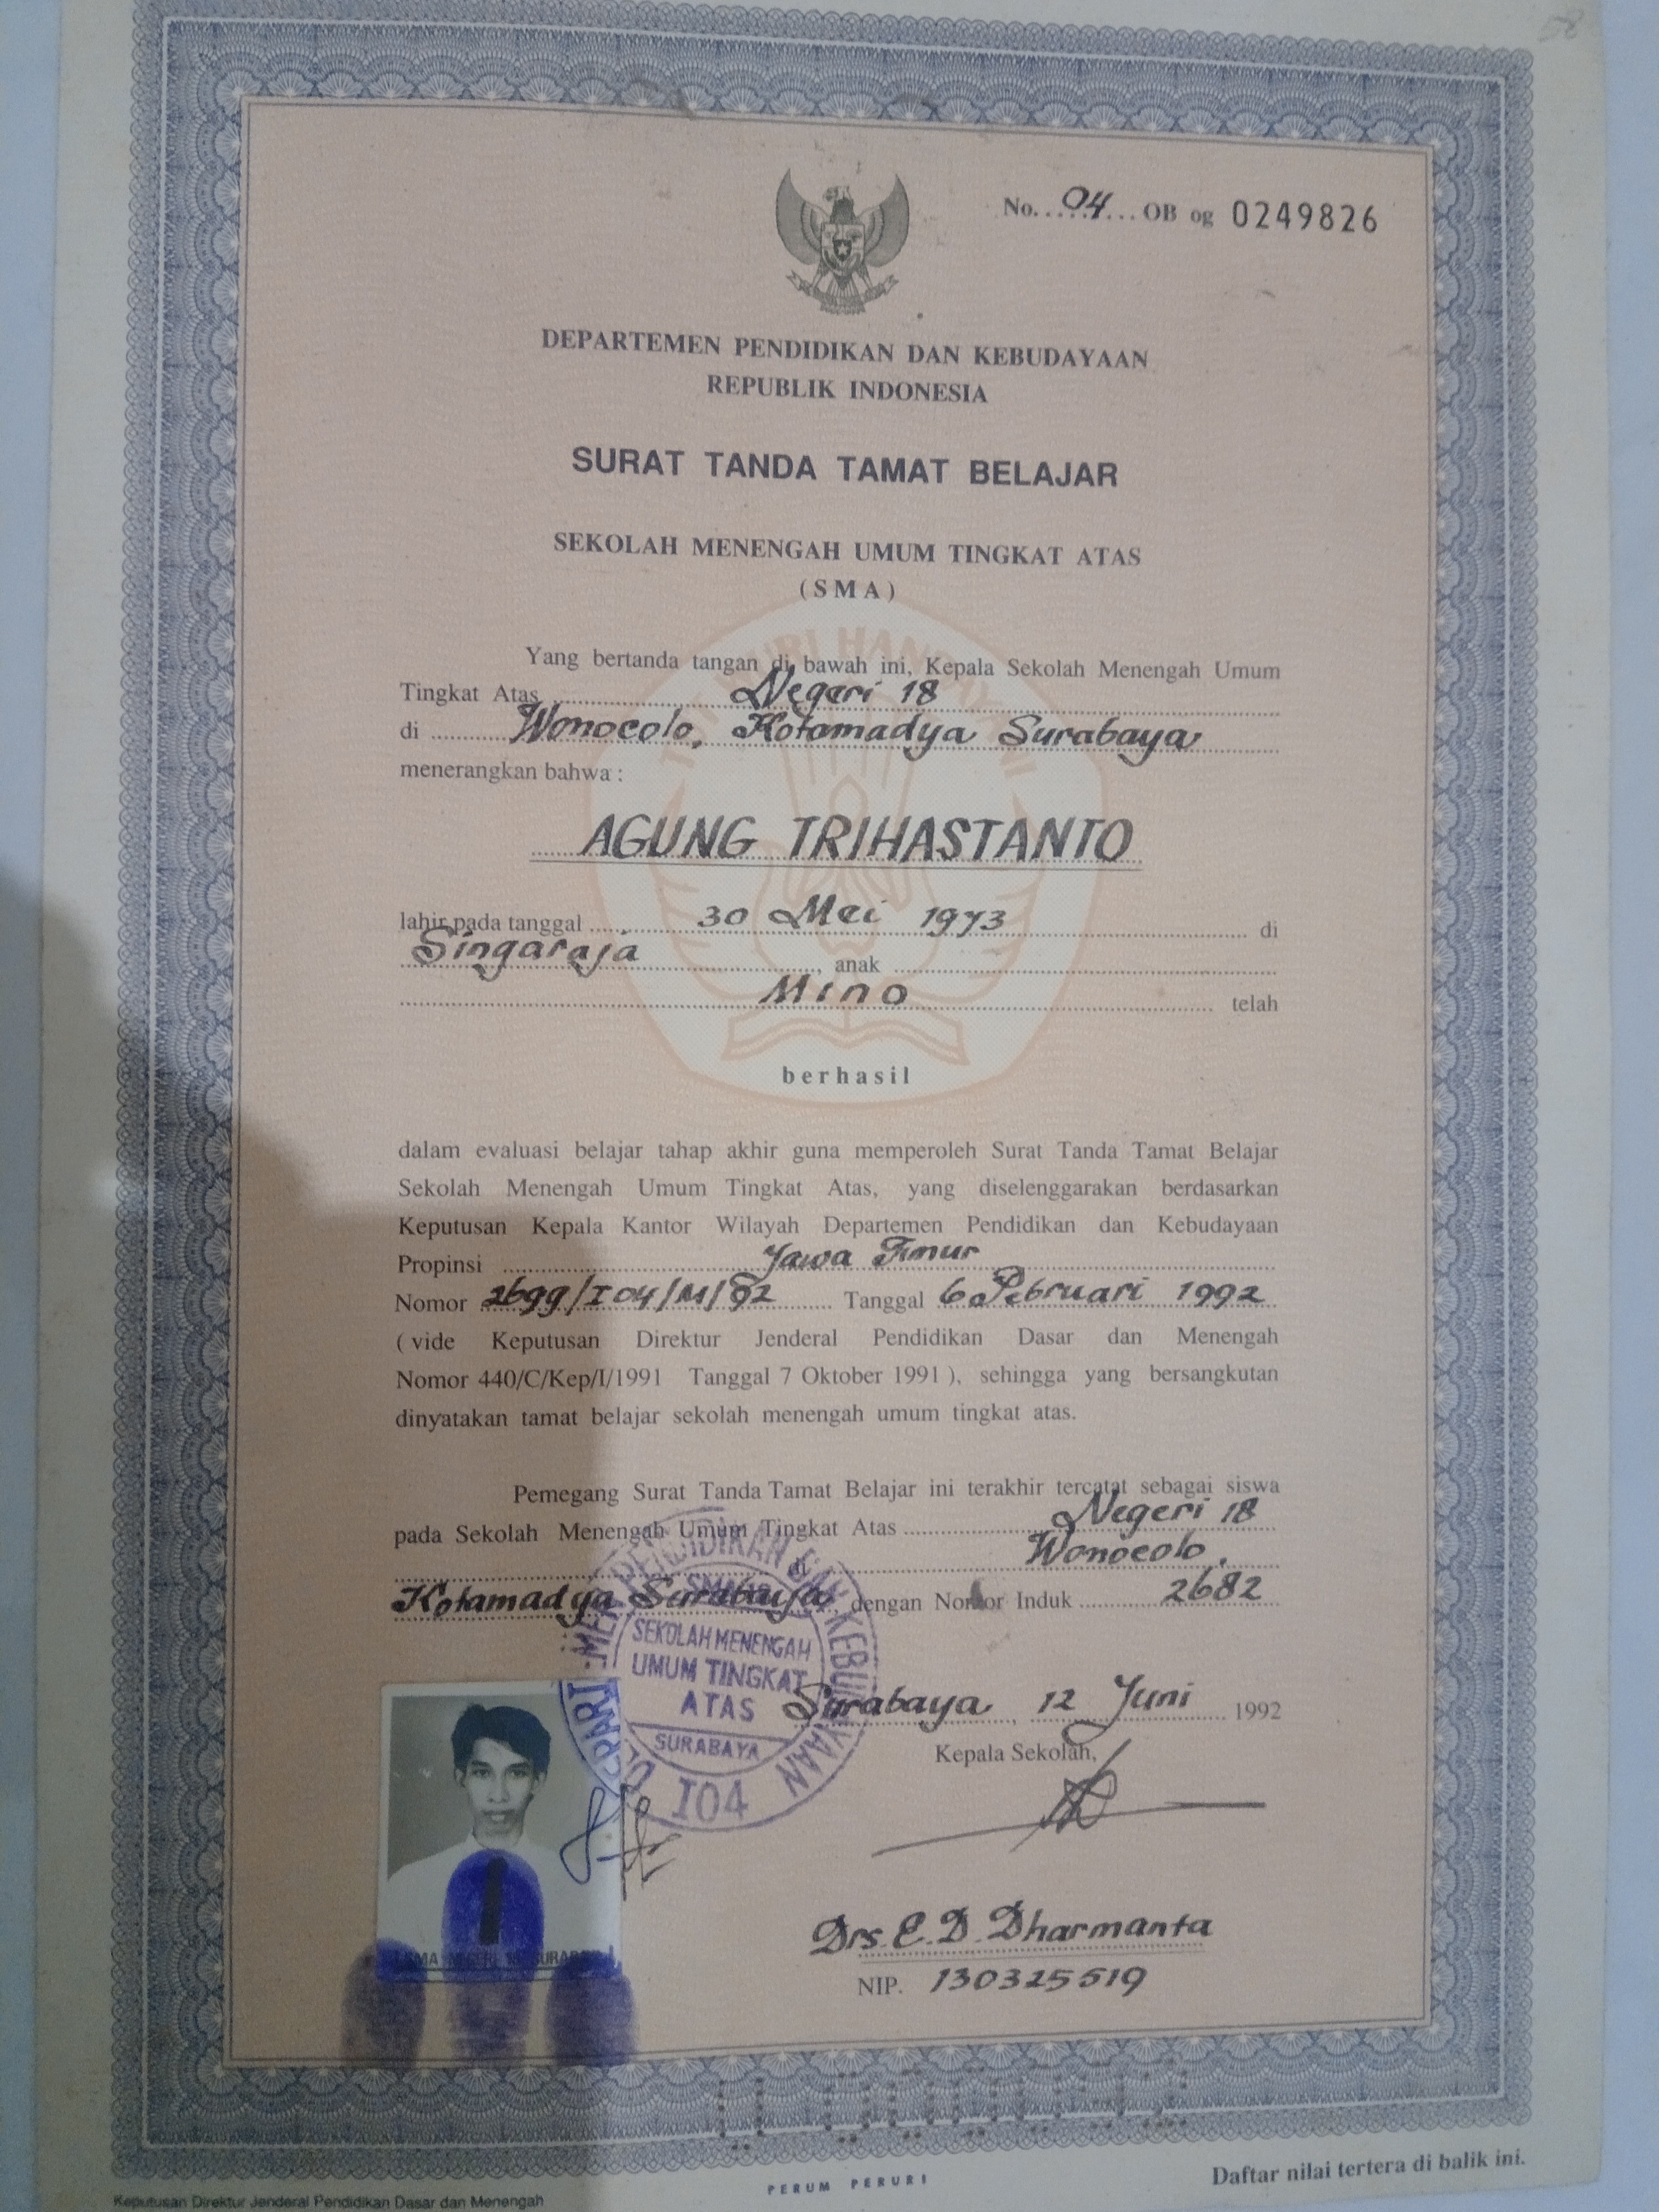 58
No. 04 OB og 0249826
DEPARTEMEN PENDIDIKAN DAN KEBUDAYAAN
REPUBLIK INDONESIA
SURAT TANDA TAMAT BELAJAR
SEKOLAH MENENGAH UMUM TINGKAT ATAS
(SMA)
Yang bertanda tangan di bawah ini, Kepala Sekolah Menengah Umum
Tingkat Atas Negeri 18
di Wonocolo, Kotamadya Surabaya
menerangkan bahwa :
AGUNG TRIHASTANTO
lahir pada tanggal 30 Mei 1973 di
Singaraja, anak
Mino telah
berhasil
dalam evaluasi belajar tahap akhir guna memperoleh Surat Tanda Tamat Belajar
Sekolah Menengah Umum Tingkat Atas, yang diselenggarakan berdasarkan
Keputusan Kepala Kantor Wilayah Departemen Pendidikan dan Kebudayaan
Propinsi Jawa Timur
Nomor 2699/I04/M/92 Tanggal 6 Pebruari 1992
( vide Keputusan Direktur Jenderal Pendidikan Dasar dan Menengah
Nomor 440/C/Kep/I/1991 Tanggal 7 Oktober 1991 ), sehingga yang bersangkutan
dinyatakan tamat belajar sekolah menengah umum tingkat atas.
Pemegang Surat Tanda Tamat Belajar ini terakhir tercatat sebagai siswa
pada Sekolah Menengah Umum Tingkat Atas Negeri 18
di Wonocolo,
Kotamadya Surabaya, dengan Nomor Induk 2682
DEPARTEMEN PENDIDIKAN DAN KEBUDAYAAN
SEKOLAH MENENGAH
UMUM TINGKAT
ATAS
SURABAYA
I04
Surabaya, 12 Juni 1992
Kepala Sekolah,
SMA NEGERI 18 SURABAYA
Drs. E. D. Dharmanta
NIP. 130325519
PERUM PERURI
Daftar nilai tertera di balik ini.
Keputusan Direktur Jenderal Pendidikan Dasar dan Menengah